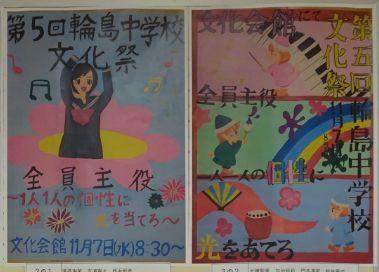 第5回輪島中学校
文化祭
全員主役
〜1人1人の個性に
光を当てろ〜
文化会館11月7日(水)8:30〜
第五回輪島中学校
文化祭
11月7日
文化会館にて
全員主役
一人一人の個性に
光をあてろ